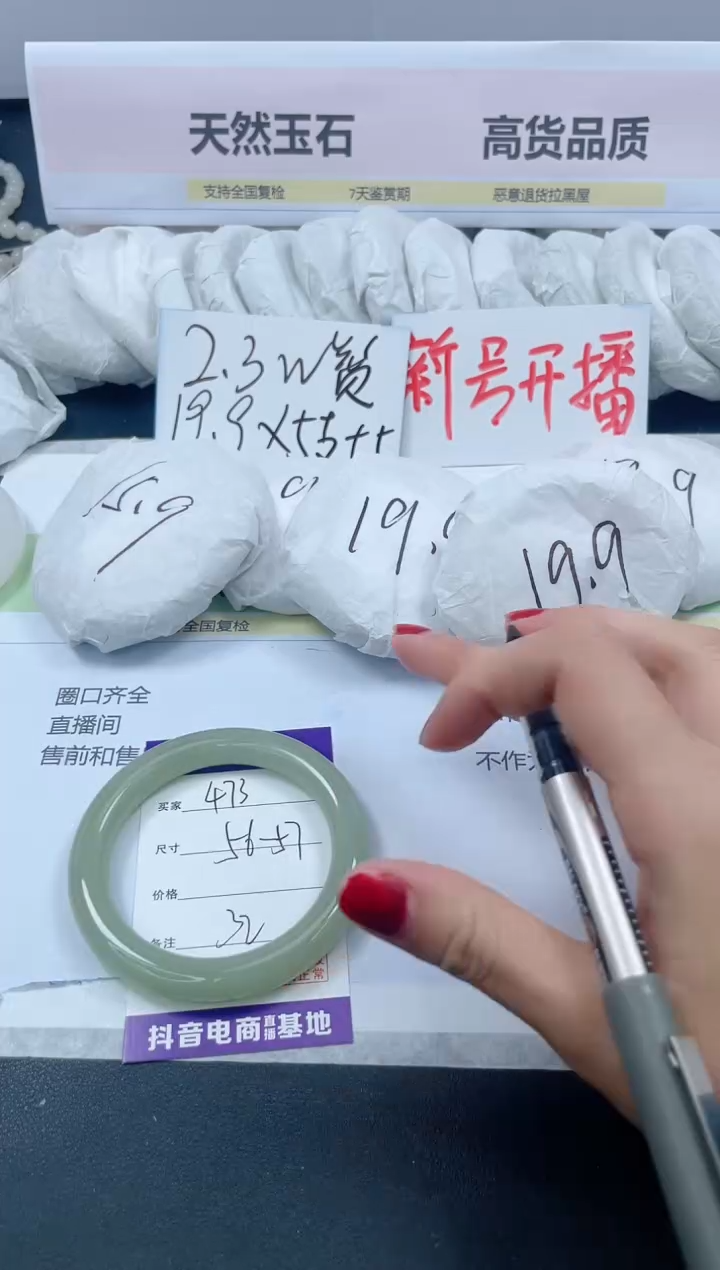 天然玉石 高货品质
支持全国复检 7天鉴赏期 恶意退货拉黑屋
2.3W赞
19.9X
新号开播
15.9
9
19.9
19.9
9
全国复检
圈口齐全
直播间
售前和售
不作
买家 473
尺寸 56-57
价格
备注 32
正常
抖音电商直播基地